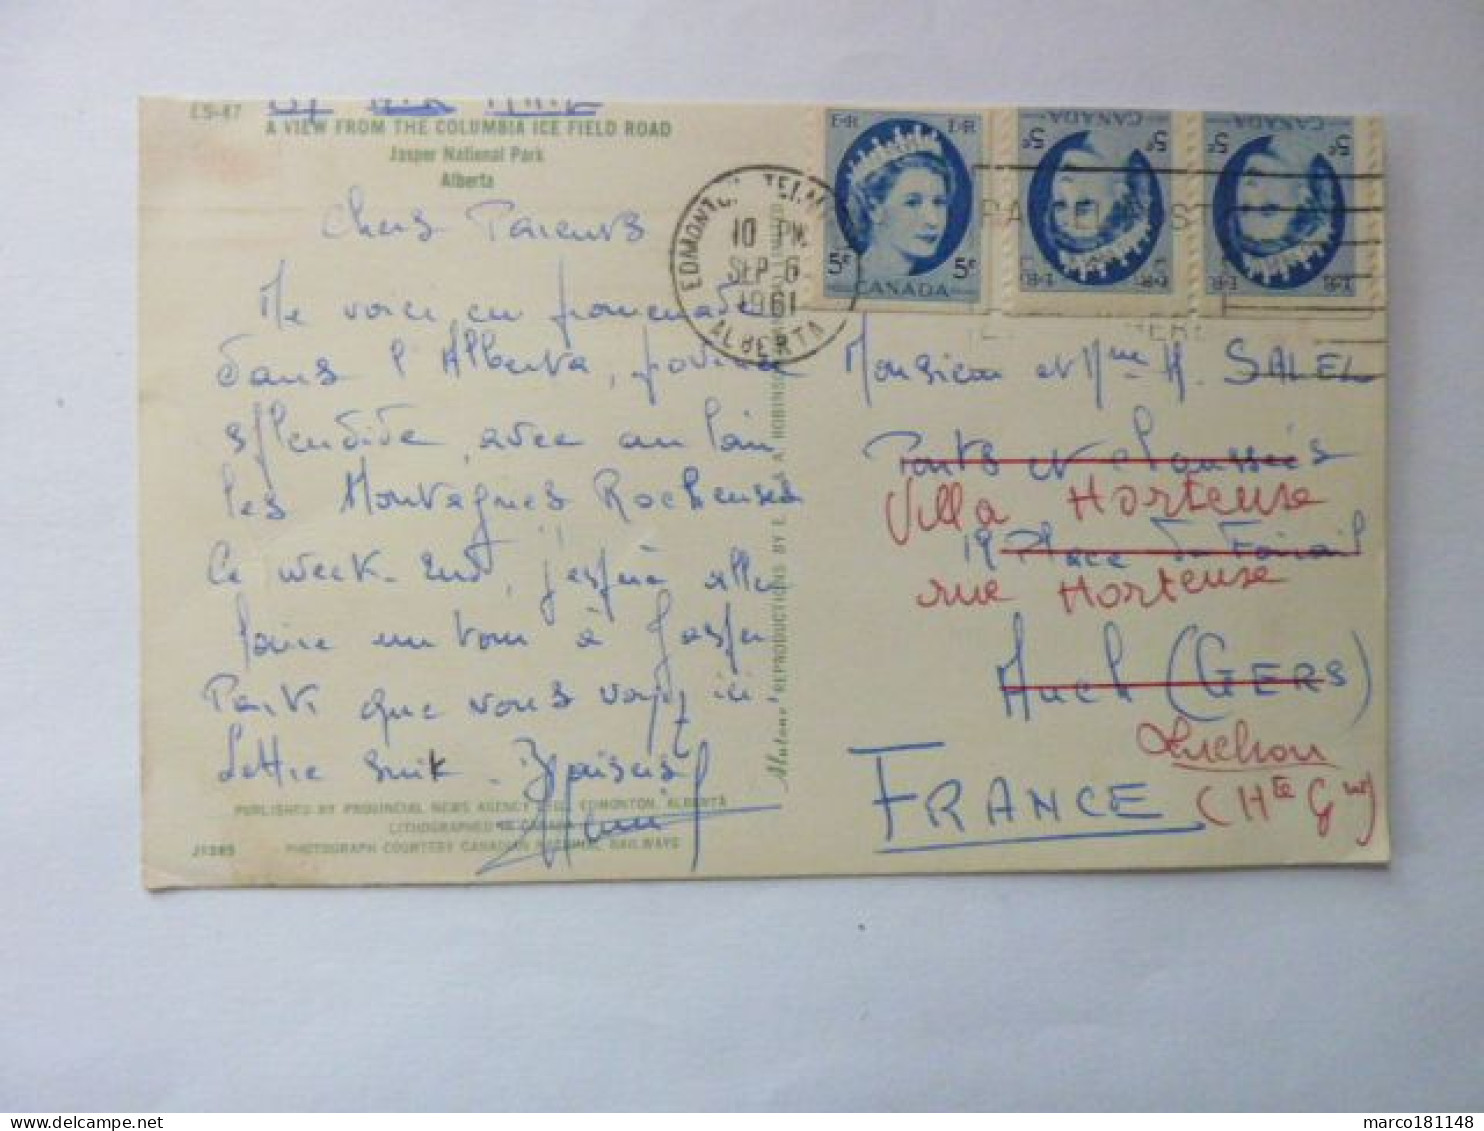 ES-47
BY AIR MAIL
A VIEW FROM THE COLUMBIA ICE FIELD ROAD
Jasper National Park
Alberta
Chers Parents
Me voici en promenade
dans l'Alberta,
splendide, avec au loin
les Montagnes Rocheuses
Ce week-end, j'espère aller
faire un tour à Jasper,
que vous voyez ici,
Lettre suit. Baisers
PUBLISHED BY PROVINCIAL NEWS AGENCY LTD., EDMONTON, ALBERTA
LITHOGRAPHED IN CANADA
PHOTOGRAPH COURTESY CANADIAN NATIONAL RAILWAYS
REPRODUCTIONS BY E. A. ROBINSON LIMITED
EDMONTON
10 PM
SEP 6
1961
ALBERTA
E·R E·R
5¢ 5¢
CANADA
CANADA
5¢ 5¢
E·R E·R
CANADA
5¢ 5¢
E·R E·R
Monsieur et Mme H. SALEL
Ponts et chaussées
Villa Hortense
19 Place du Foirail
rue Hortense
Auch (GERS)
Luchon
FRANCE
(Hte Gne)
marco181148